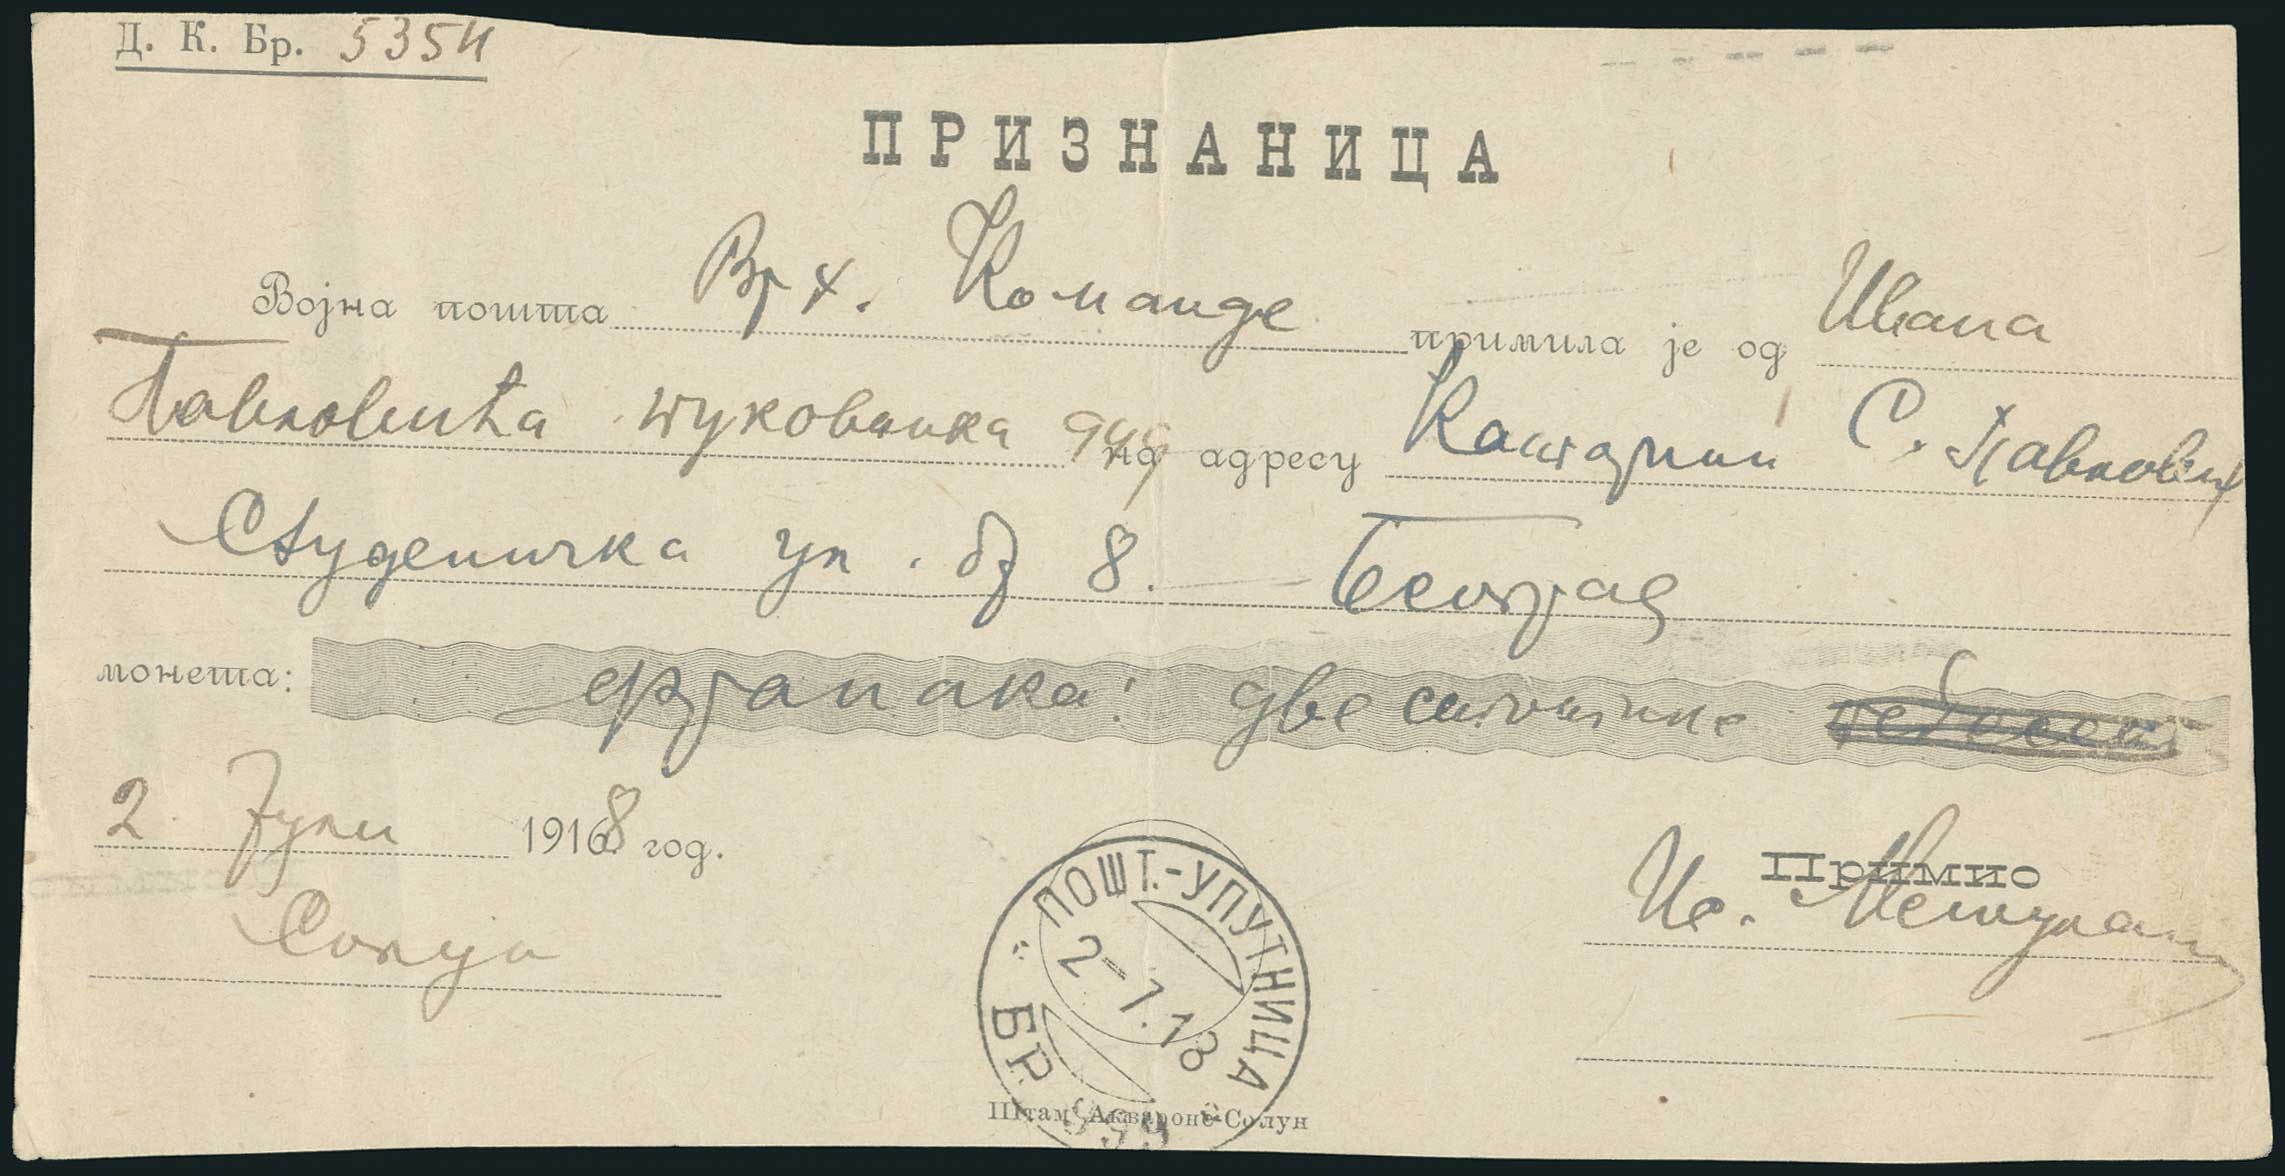 Д. К. Бр. 5354
ПРИЗНАНИЦА
Војна пошта Врх. Команде примила је од Ивана
Павловића пуковника на адресу Катарини С. Павловић
Студеничка ул. бр 8. Београд
монета: франака: две стотине
2 Јули 1918 год.
Солун
Примио
ПОШТ.-УПУТНИЦА
2-7.18
БР
Штам. Аквароне-Солун